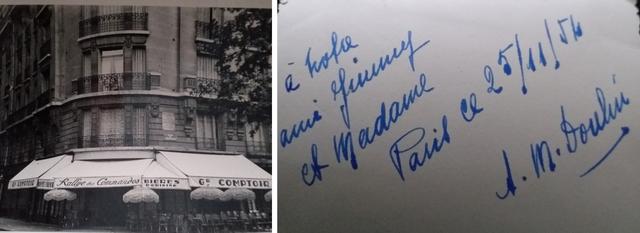 Gd COMPTOIR
Rallye des Commandos
BIERES
Gd COMPTOIR
à notre
ami Jimmy
et Madame
Paris ce 25/11/54
A. M. Doulin